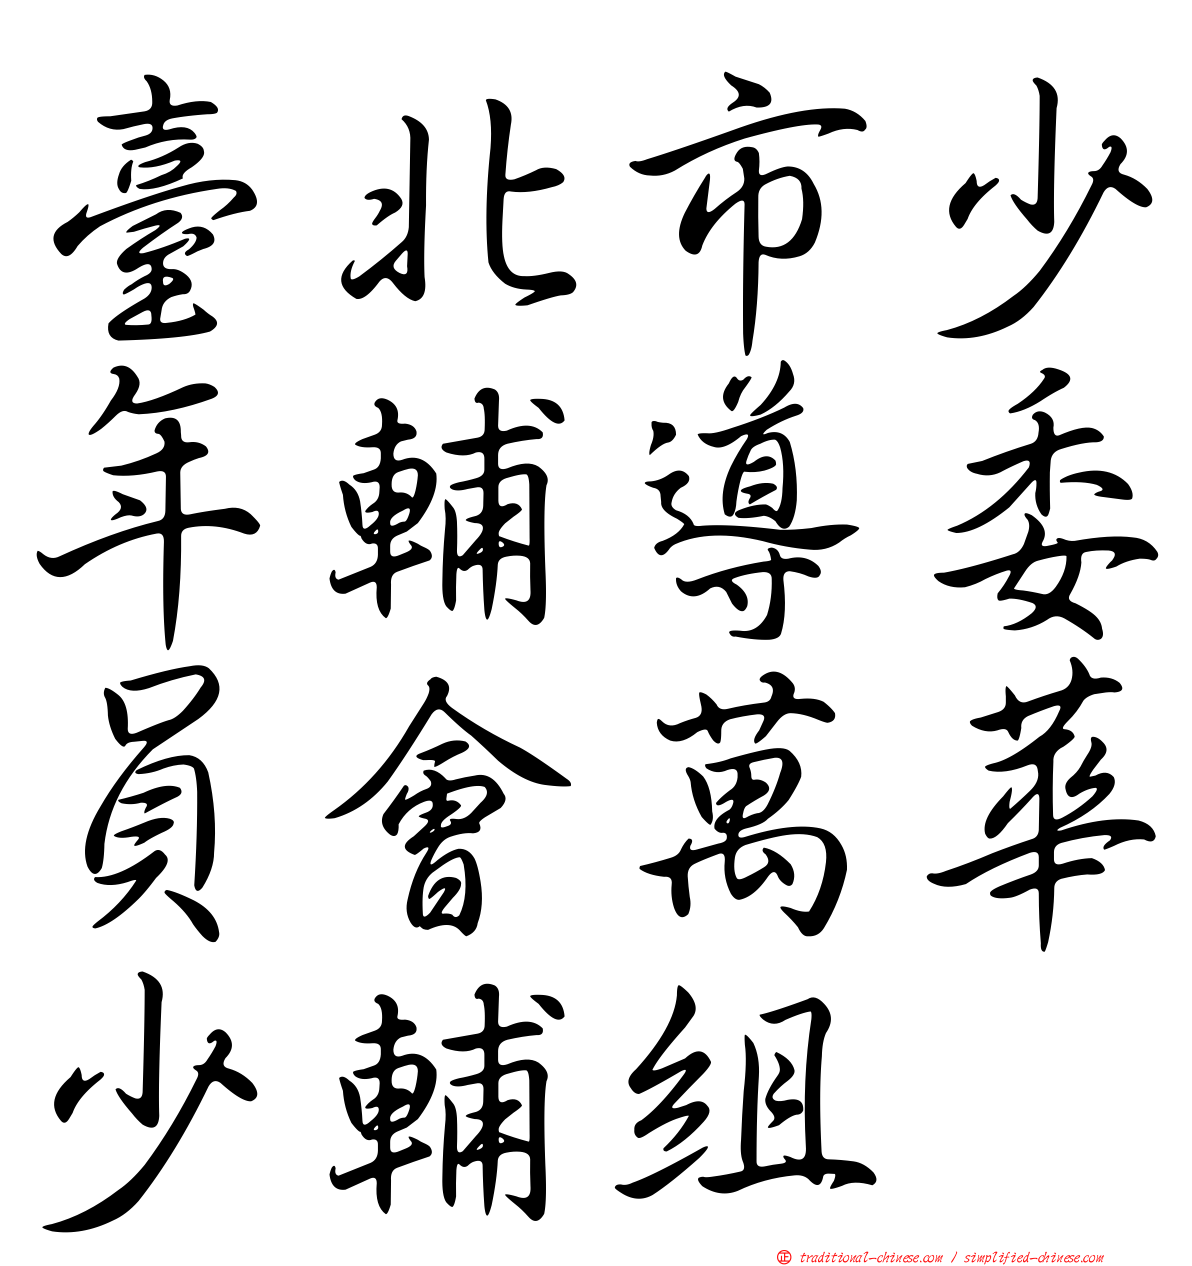 臺北市少
年輔導委
員會萬華
少輔組
㊣ traditional-chinese.com / simplified-chinese.com